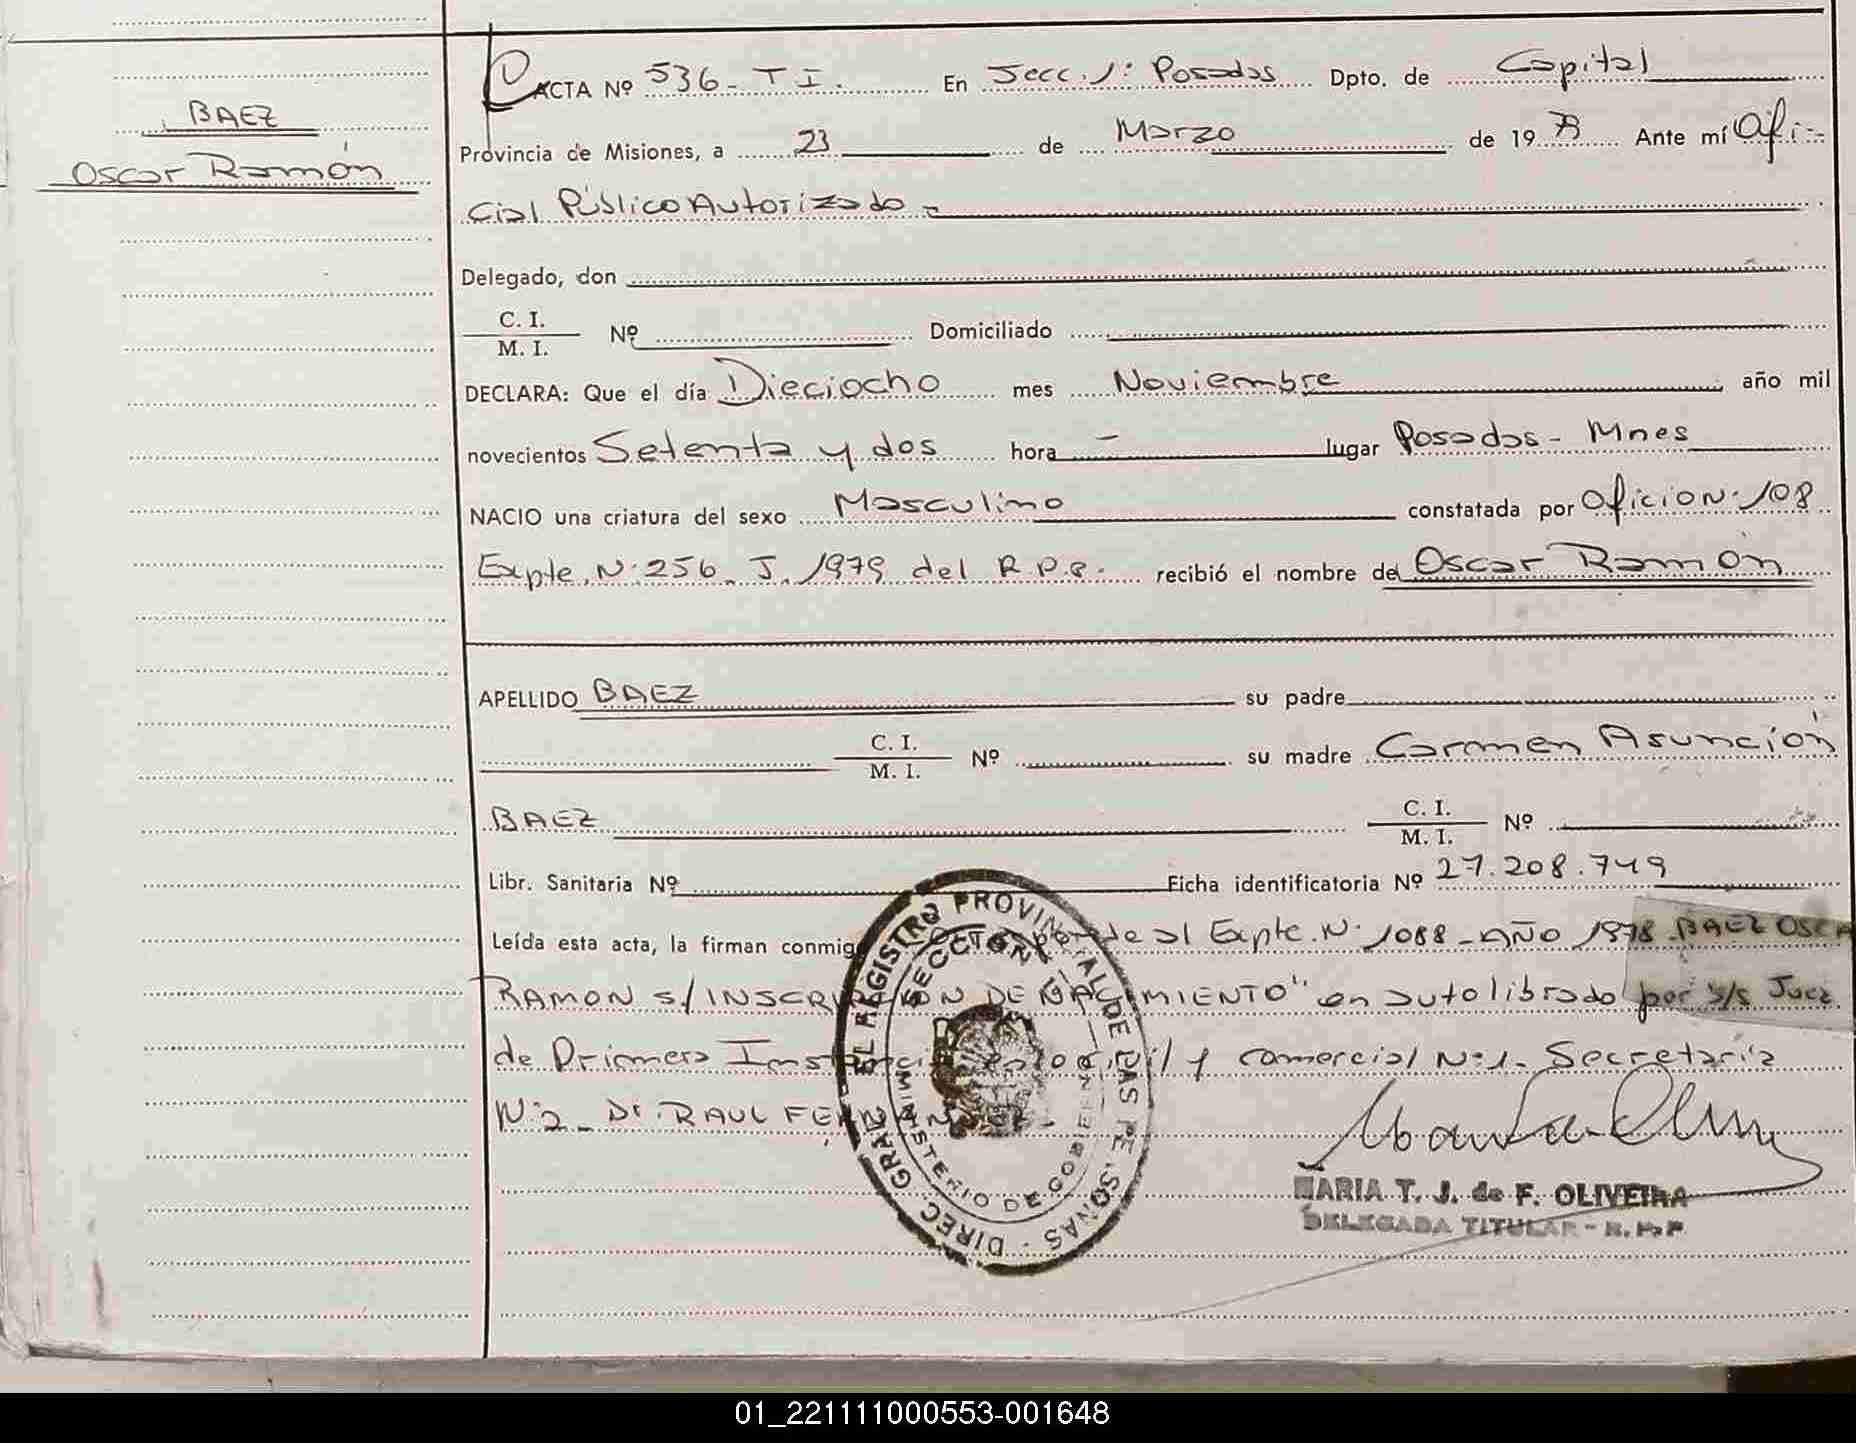 BAEZ
Oscar Ramón
ACTA Nº 536 - T I. En Secc. 1ª Posadas Dpto. de Capital
Provincia de Misiones, a 23 de Marzo de 1979 Ante mí Ofi-
cial Público Autorizado -
Delegado, don
C. I.
M. I. Nº Domiciliado
DECLARA: Que el día Dieciocho mes Noviembre año mil
novecientos Setenta y dos hora - lugar Posadas - Mnes
NACIO una criatura del sexo Masculino constatada por Oficio N· 108
Expte. N· 256 - J - 1979 del R.P.P. recibió el nombre de Oscar Ramón
APELLIDO BAEZ su padre
C. I.
M. I. Nº su madre Carmen Asunción
BAEZ C. I.
M. I. Nº
Libr. Sanitaria Nº Ficha identificatoria Nº 27.208.749
Leída esta acta, la firman conmigo al Expte. N· 1088 - AÑO 1978 - BAEZ OSCA
RAMON s/ INSCRIPCION DE NACIMIENTO" en auto librado por s/s Juez
de Primera Instancia en lo civil y comercial N· 1 - Secretaría
N· 2 - Dr. RAUL
DIREC. GRAL. DEL REGISTRO PROVINCIAL DE LAS PERSONAS
SECCION 1ª
MINISTERIO DE GOBIERNO
MARIA T. J. de F. OLIVEIRA
DELEGADA TITULAR - R. P. P
01_221111000553-001648